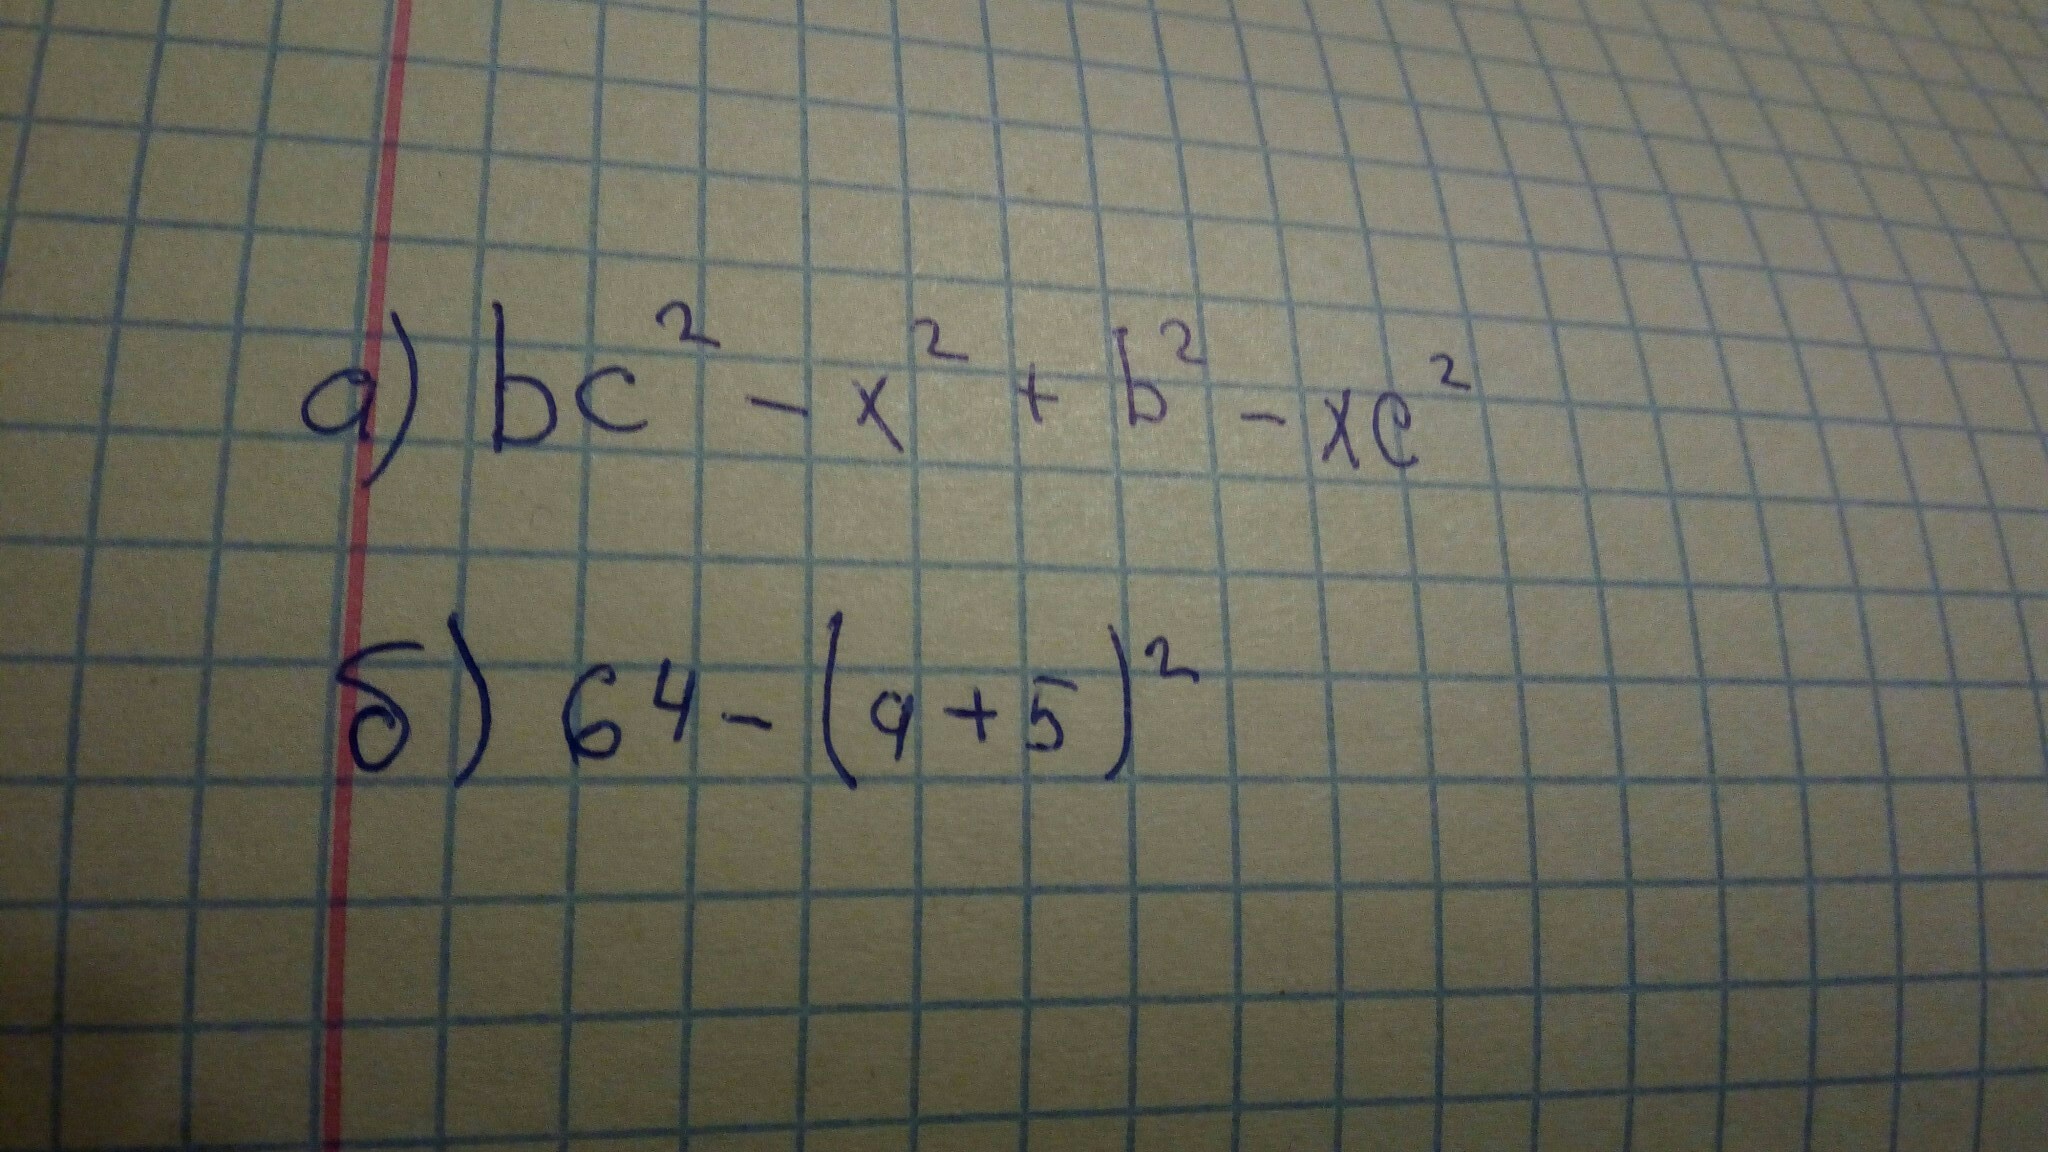 а) bc² - x² + b² - xc²
б) 64 - (a + 5)²